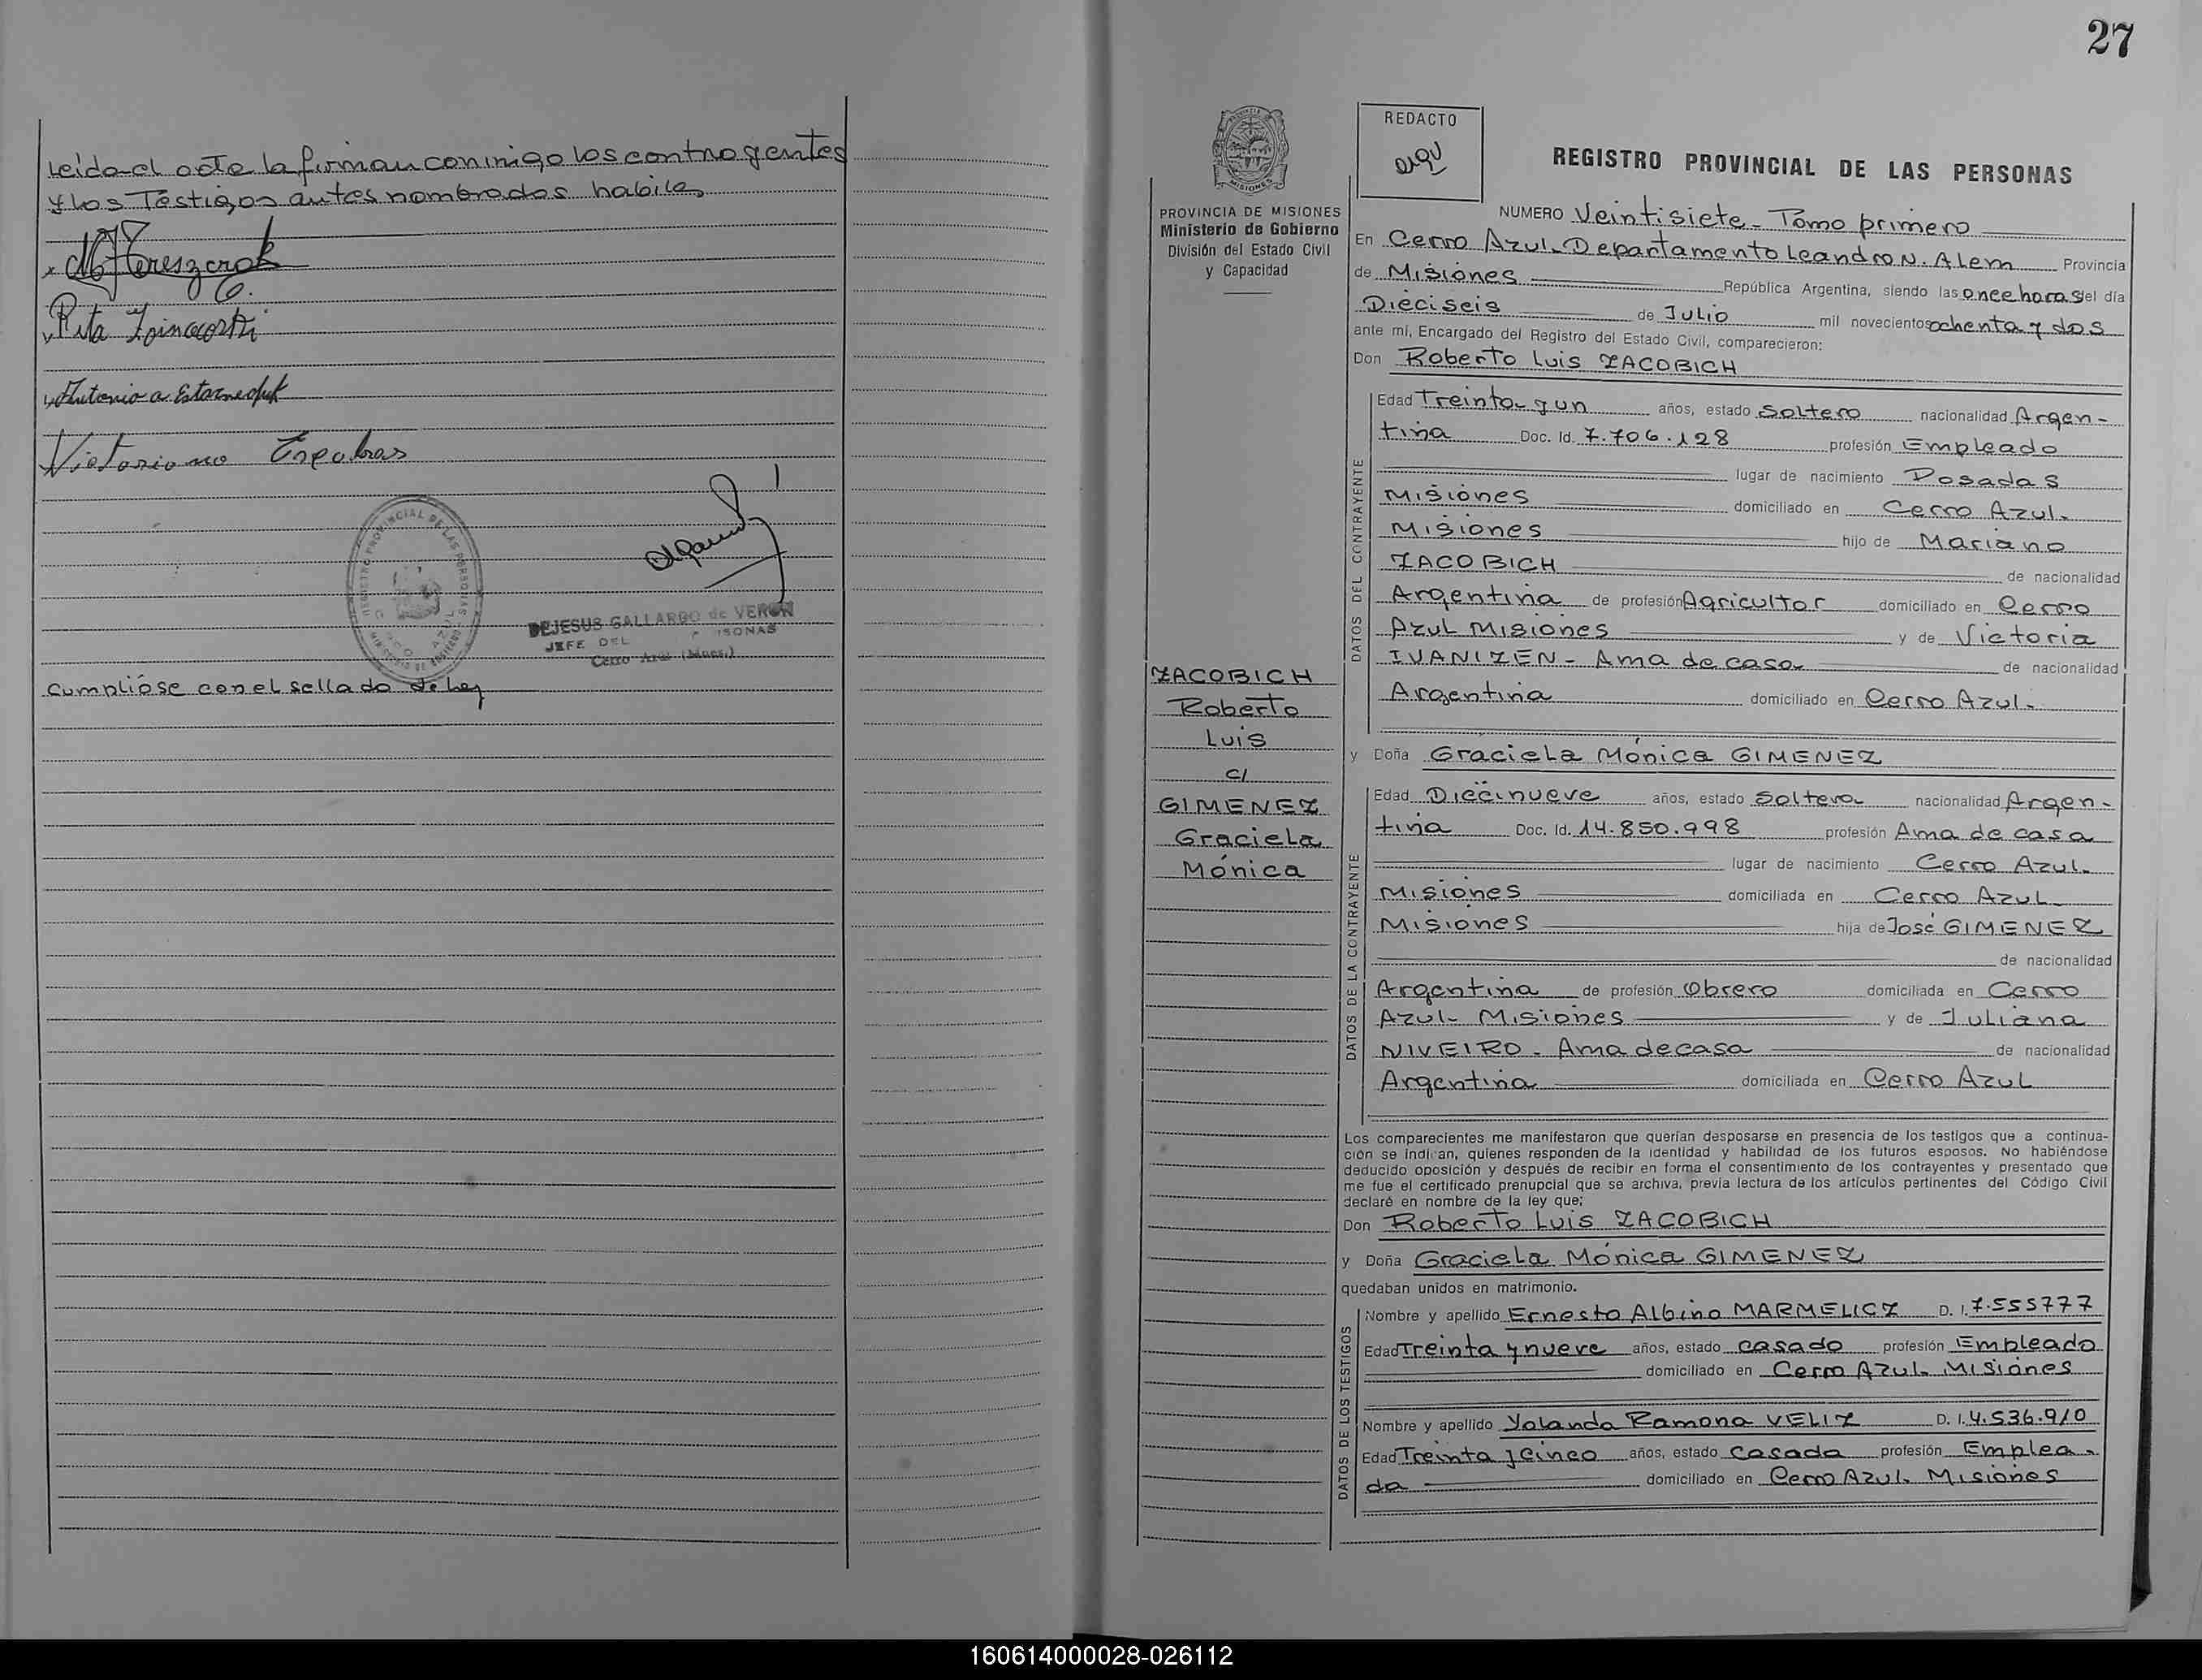 Leida el acta la firman conmigo los contrayentes
y los Testigos antes nombrados habiles
Rita
Antonio a.
Victoriano
REGISTRO PROVINCIAL DE LAS PERSONAS
DEJESUS GALLARDO de VERON
JEFE DEL
Cerro Azul (Mnes.)
Cumplióse con el sellado de Ley
27
REDACTO
PROVINCIA DE MISIONES
Ministerio de Gobierno
División del Estado Civil
y Capacidad
ZACOBICH
Roberto
Luis
c/
GIMENEZ
Graciela
Mónica
REGISTRO PROVINCIAL DE LAS PERSONAS
NUMERO Veintisiete - Tomo primero
En Cerro Azul - Departamento Leandro N. Alem Provincia
de Misiones República Argentina, siendo las once horas del día
Dieciseis de Julio mil novecientos ochenta y dos
ante mí, Encargado del Registro del Estado Civil, comparecieron:
Don Roberto Luis ZACOBICH
DATOS DEL CONTRAYENTE
Edad Treinta y un años, estado Soltero nacionalidad Argen-
tina Doc. Id. 7.706.128 profesión Empleado
lugar de nacimiento Posadas
Misiones domiciliado en Cerro Azul-
Misiones hijo de Mariano
ZACOBICH de nacionalidad
Argentina de profesión Agricultor domiciliado en Cerro
Azul Misiones y de Victoria
IVANIZEN - Ama de casa de nacionalidad
Argentina domiciliado en Cerro Azul-
y Doña Graciela Mónica GIMENEZ
DATOS DE LA CONTRAYENTE
Edad Diecinueve años, estado Soltera nacionalidad Argen-
tina Doc. Id. 14.850.998 profesión Ama de casa
lugar de nacimiento Cerro Azul-
Misiones domiciliada en Cerro Azul-
Misiones hija de José GIMENEZ
de nacionalidad
Argentina de profesión Obrero domiciliada en Cerro
Azul- Misiones y de Juliana
NIVEIRO - Ama de casa de nacionalidad
Argentina domiciliada en Cerro Azul
Los comparecientes me manifestaron que querían desposarse en presencia de los testigos que a continua-
ción se indican, quienes responden de la identidad y habilidad de los futuros esposos. No habiéndose
deducido oposición y después de recibir en forma el consentimiento de los contrayentes y presentado que
me fue el certificado prenupcial que se archiva, previa lectura de los artículos pertinentes del Código Civil
declaré en nombre de la ley que:
Don Roberto Luis ZACOBICH
y Doña Graciela Mónica GIMENEZ
quedaban unidos en matrimonio.
DATOS DE LOS TESTIGOS
Nombre y apellido Ernesto Albino MARMELICZ D. I. 7.555777
Edad Treinta y nueve años, estado casado profesión Empleado
domiciliado en Cerro Azul- Misiones
Nombre y apellido Yolanda Ramona VELIZ D. I. 4.536.910
Edad Treinta y Cinco años, estado Casada profesión Emplea-
da domiciliado en Cerro Azul- Misiones
160614000028-026112